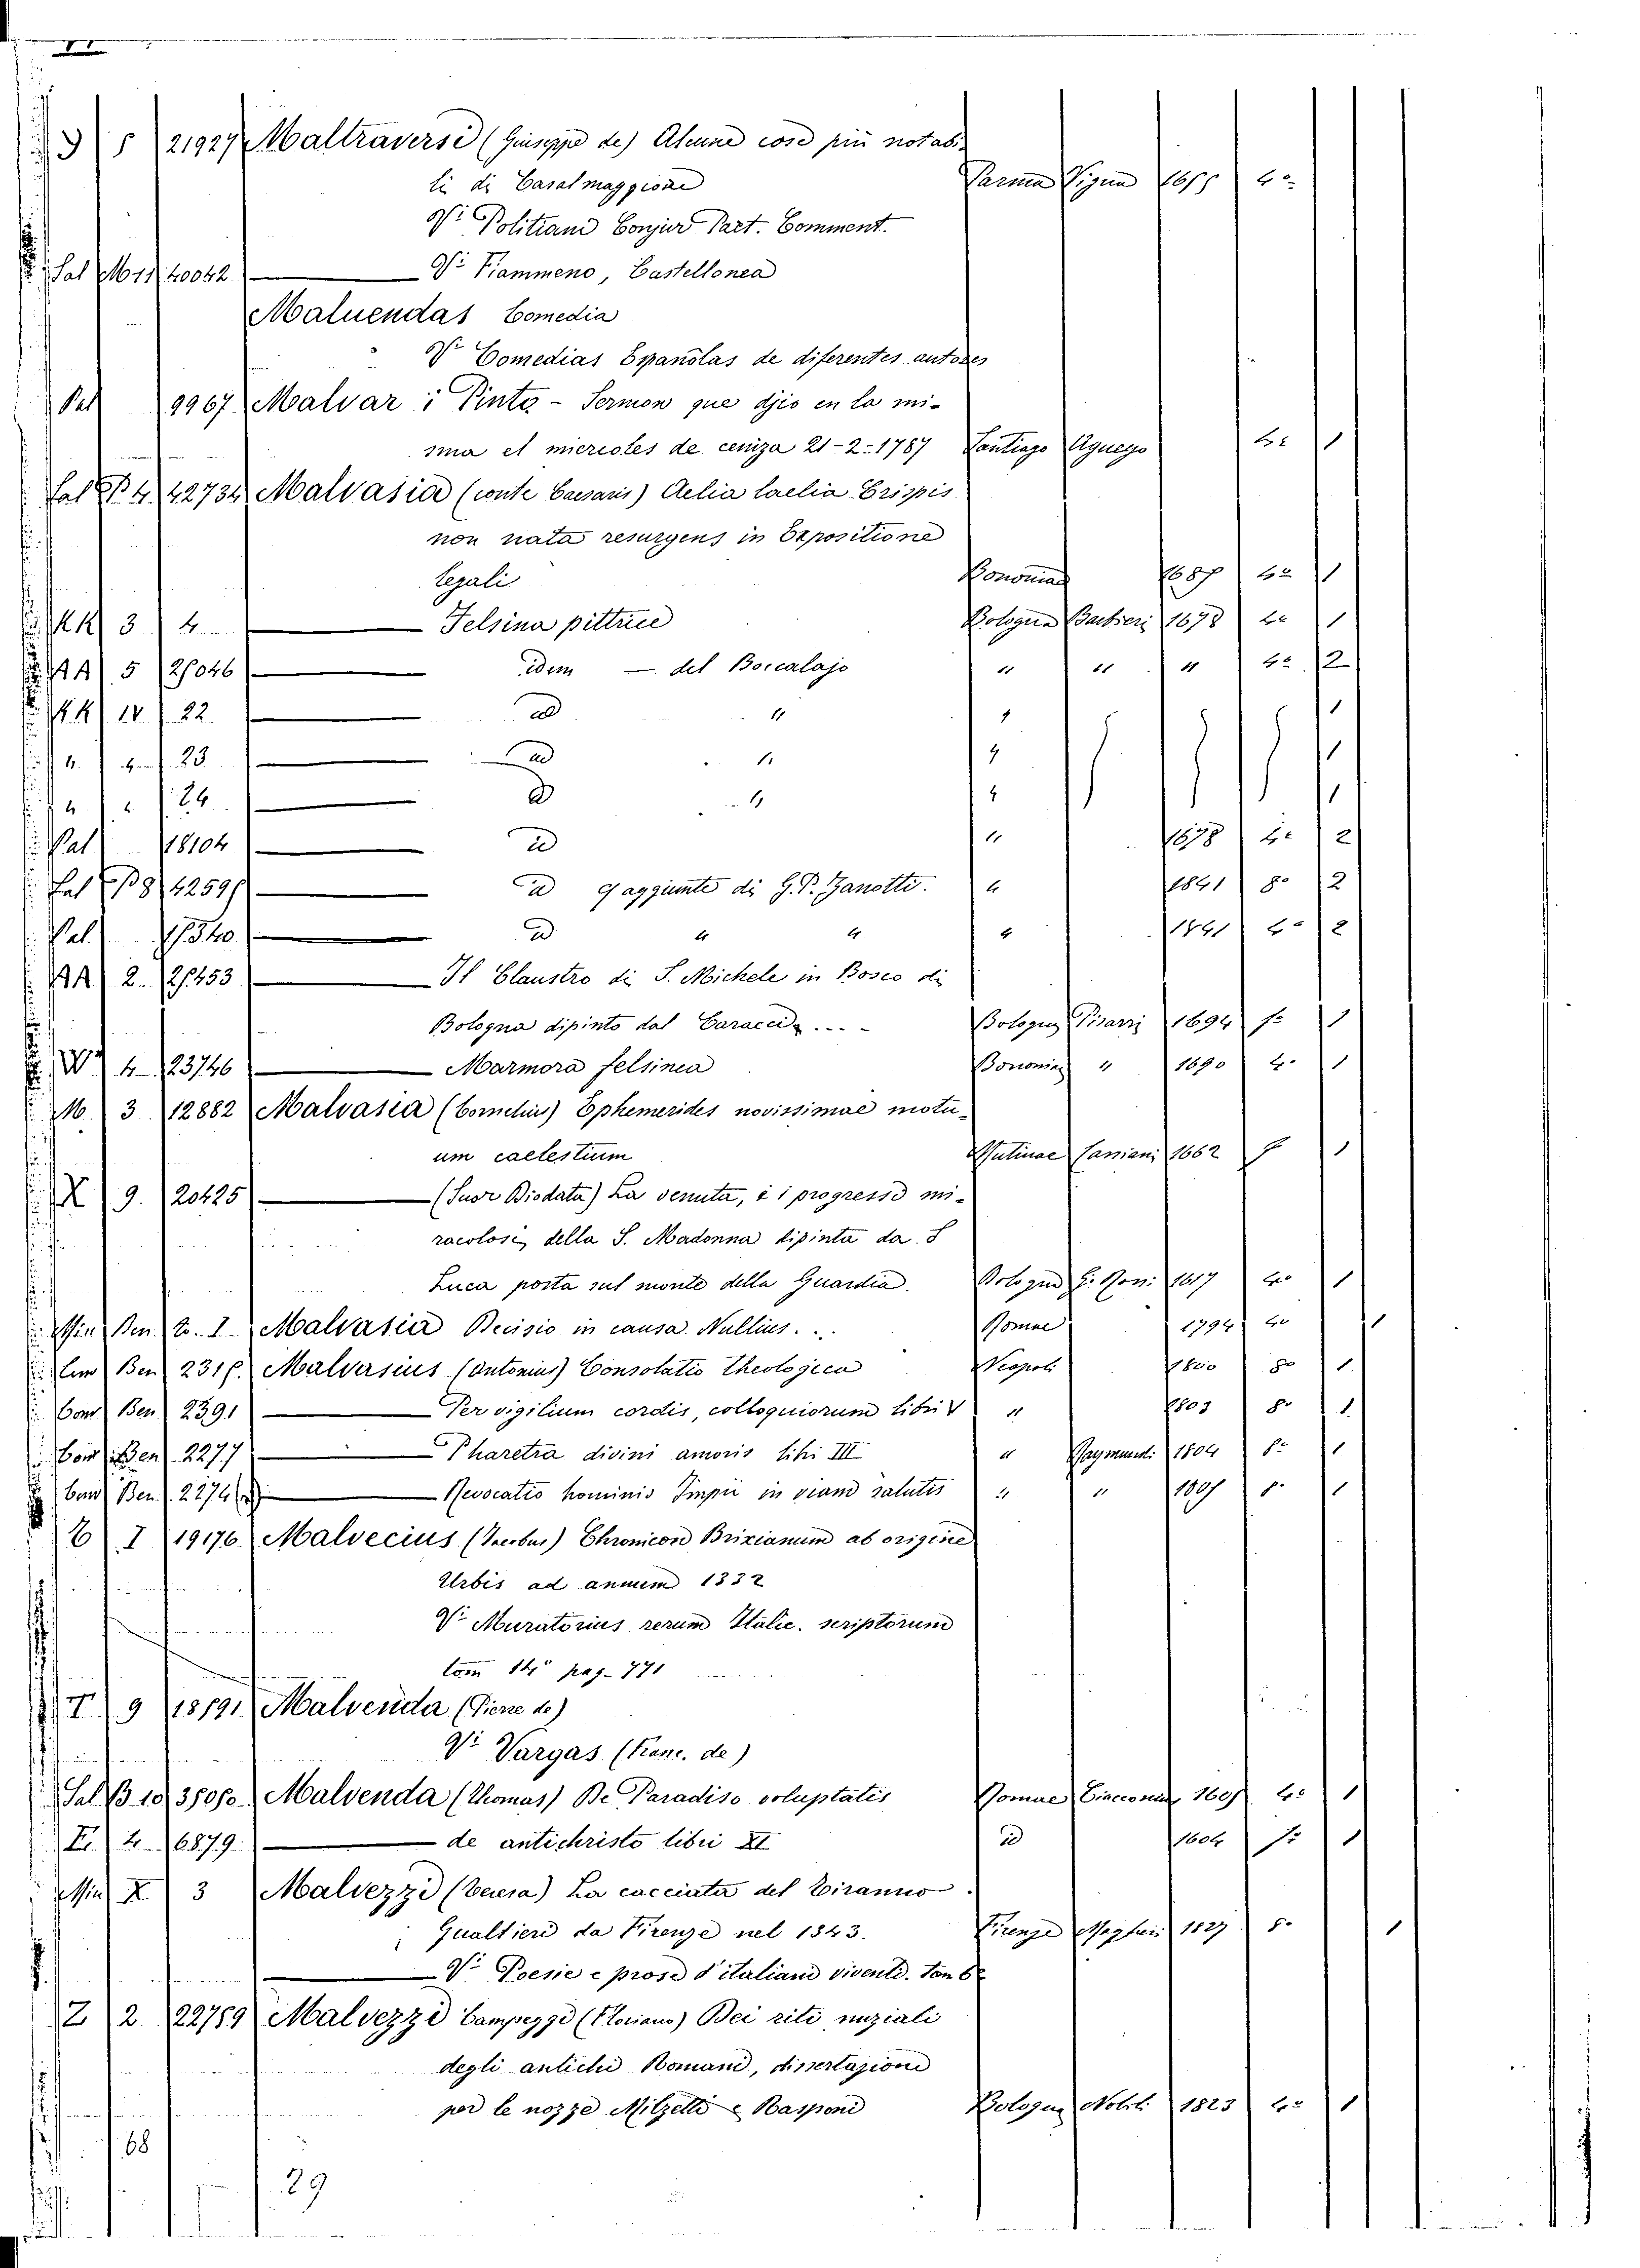 J 5 21927 Maltraversi (Giuseppe de) Alcune cose più notabi-
li di Casalmaggiore Parma Vigna 1655 4°
V: Politiani Conjur Pact. Comment.
Sal M 11 40042 V: Fiammeno, Castellonea
Maluendas Comedia
V: Comedias Espanolas de diferentes autores
Pal 9967 Malvar i Pinto - Sermon que djio en la mi-
sma el miercoles de ceniza 21-2-1787 Santiago Aguayo 4° 1
Sal B 4 42734 Malvasia (conte Caesaris) Aelia laelia Crispis
non nata resurgens in Expositione
legali Bononiae 1687 4° 1
KK 3 4 Felsina pittrice Bologna Barbieri 1678 4° 1
AA 5 25046 idem — del Borcalajo " " " 4° 2
KK IV 22 id " " 1
" " 23 id " " 1
" " 24 id " " 1
Pal 18104 id " 1678 4° 2
Sal B 8 42595 id e aggiunte di G. P. Zanotti. " 1841 8° 2
Pal 15340 id " " " 1841 4° 2
AA 2 25453 Il Claustro di S. Michele in Bosco di
Bologna dipinto dal Caracci.... Bologna Pisarri 1694 f° 1
W 4 23746 Marmora felsinea Bononiae " 1690 4° 1
M 3 12882 Malvasia (Cornelius) Ephemerides novissimae motu-
um caelestium Mutinae Cassiani 1662 f° 1
X 9. 20425 (Suor Diodata) La venuta, e i progressi mi-
racolosi, della S. Madonna dipinta da S
Luca posta sul monte della Guardia. Bologna 1617 4° 1
Min Ben to. I Malvasia Decisio in causa Nullius... Romae 1794 4° 1
Com Ben 2315. Malvasius (Antonius) Consolatio Theologica Neapoli 1800 8° 1
Com Ben 2391 Pervigilium cordis, colloquiorum libri V " 1803 8° 1
Com Ben 2277 Pharetra divini amoris libi III " Raymundi 1804 8° 1
Com Ben 2274 Revocatio hominis Impii in viam salutis " " 1805 8° 1
C I 19176 Malvecius (Jacobus) Chronicon Brixianum ab origine
Urbis ad annum 1332
V: Muratorius rerum Italic. scriptorum
tom 14° pag. 771
T 9 18191 Malvenda (Pierre de)
V: Vargas (Franc. de)
Sal B 10 35050 Malvenda (Thomas) De Paradiso voluptatis Romae 1605 4° 1
F. 4 6879 de antichristo libri XI id 1604 f° 1
Min X 3 Malvezzi (Teresa) La cacciata del Tiranno
Gualtieri da Firenze nel 1343. Firenze Magheri 1827 8° 1
V: Poesie e prose d'italiani viventi. Tom 6°
Z 2 22759 Malvezzi Campeggi (Floriano) Dei riti nuziali
degli antichi Romani, dissertazione
per le nozze Milzetti e Rasponi Bologna Nobili 1823 4° 1
68
29